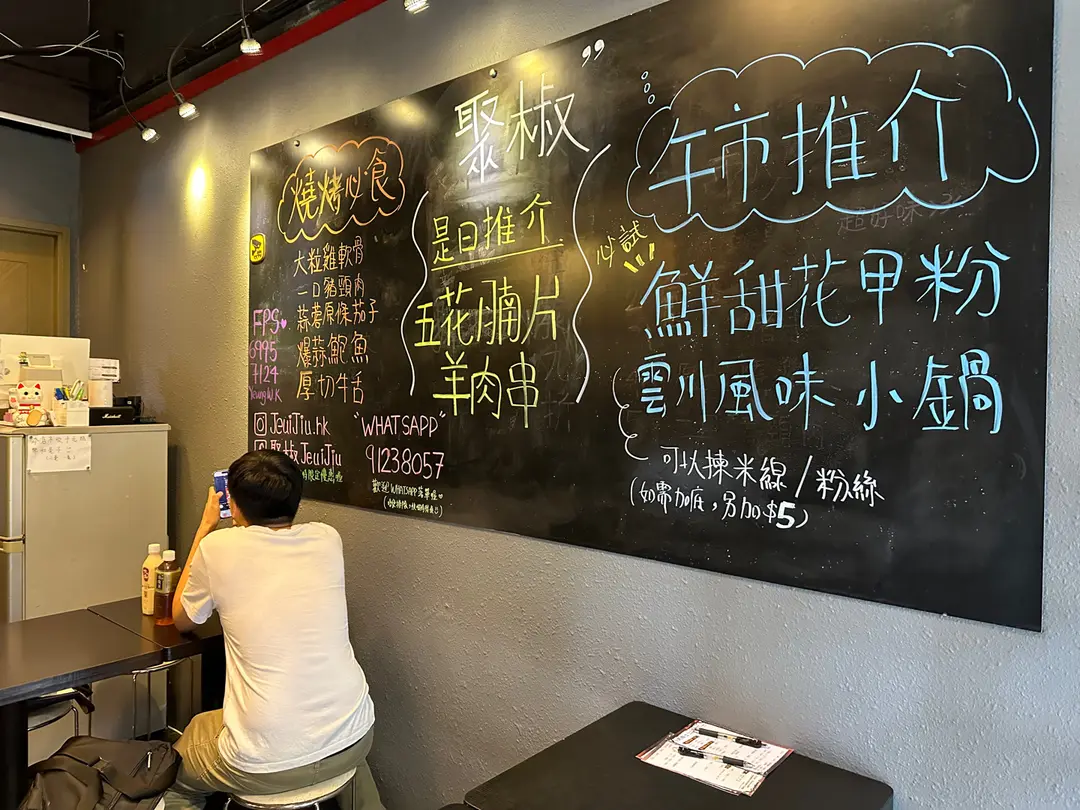 燒烤必食
大粒雞軟骨
一口豬頸肉
蒜蓉原條茄子
爆蒜鮑魚
厚切牛舌
FPS
6995
7124
YeungW.K
JeuiJiu.hk
聚椒JeuiJiu
聚椒
是日推介
五花腩片
羊肉串
"WHATSAPP"
91238057
歡迎WHATSAPP落單
必試
午市推介
超好味
鮮甜花甲粉
雲川風味小鍋
可以揀米線/粉絲
(如需加底，另加$5)
Marshall